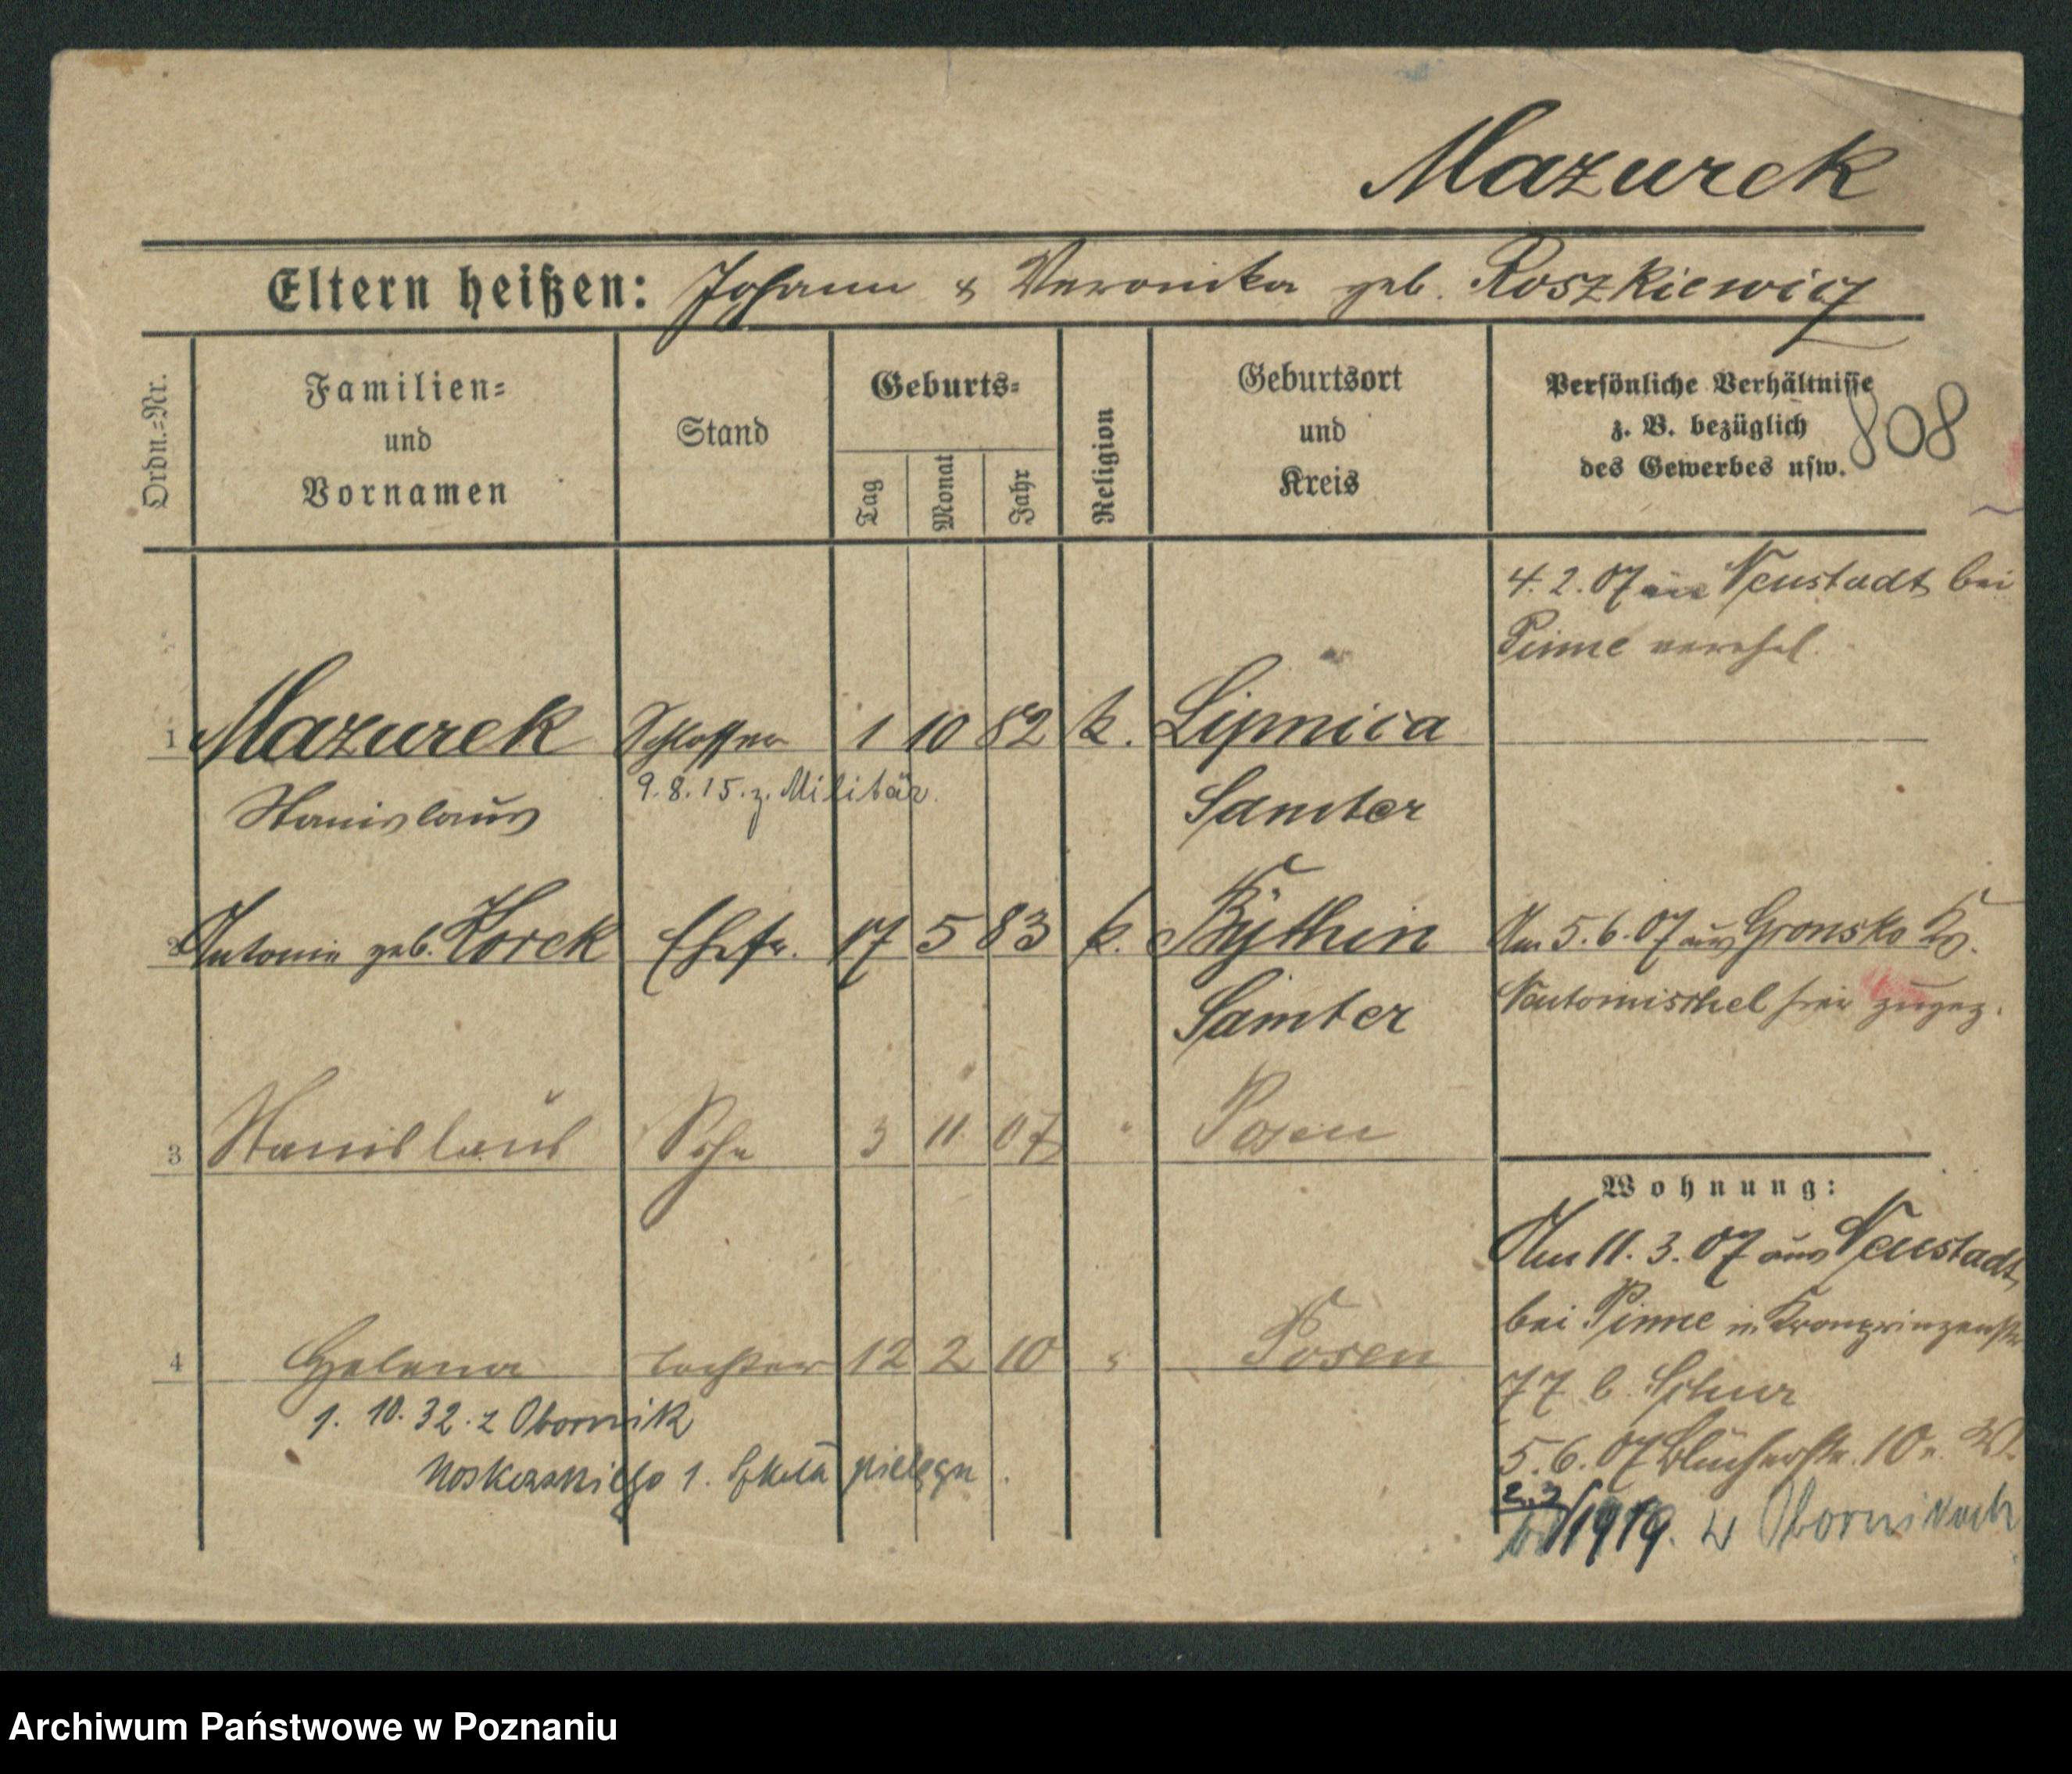 Mazurek
Eltern heißen: Johann & Veronika geb. Roszkiewicz
Ordn.=Nr.
Familien=
und
Vornamen
Stand
Geburts=
Tag
Monat
Jahr
Religion
Geburtsort
und
Kreis
Persönliche Verhältnisse
z. B. bezüglich
des Gewerbes usw.
808
4. 2. 07 in Neustadt bei
Pinne verehel.
1 Mazurek Schlosser 1 10 82 k. Lipnica
9. 8. 15. z. Militär.
Stanislaus Samter
2 Antonie geb. Korek Ehefr. 17 5 83 k. Bythin
Am 5. 6. 07 aus Gronsko Kr.
Samter
Neutomischel hier zugez.
3 Stanislaus Sohn 3 11 07 " Posen
Wohnung:
Am 11. 3. 07 aus Neustadt
bei Pinne n. Kronprinzenstr
4 Helena Tochter 12 2 10 " Posen
77 b.
1. 10. 32. z Obornik
5. 6. 07 Blücherstr. 10
1. pielęgn.
1919. w Obornikach
Archiwum Państwowe w Poznaniu